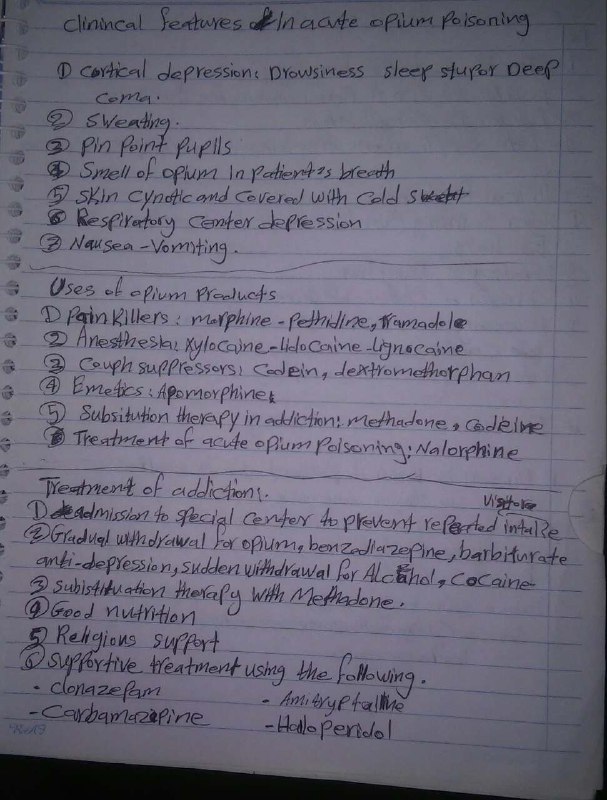 Clinincal features In acute opium poisoning
① Cortical depression: Drowsiness sleep stupor Deep
Coma.
② Sweating.
③ Pin Point Pupills
④ Smell of opium in patient's breath
⑤ Skin Cynotic and Covered with Cold Sweat
⑥ Respiratory Center depression
⑦ Nausea - Vomiting.
Uses of opium Products
① Pain Killers: morphine - pethidine, Tramadole
② Anesthesia: xylocaine - lidocaine - lignocaine
③ Couph suppressors: Codein, dextromethorphan
④ Emetics: Apomorphine
⑤ Subsitution therapy in addiction: methadone, Codeine
⑥ Treatment of acute opium Poisoning: Nalorphine
Treatment of addiction:
Visitors
① admission to special center to prevent repeated intake
② Gradual withdrawal for opium, benzodiazepine, barbiturate
anti-depression, sudden withdrawal for Alcohol, Cocaine
③ Subistituation therapy with Methadone.
④ Good nutrition
⑤ Religious support
⑥ Supportive treatment using the following.
- Clonazepam - Amitryptaline
- Carbamazapine - Halloperidol